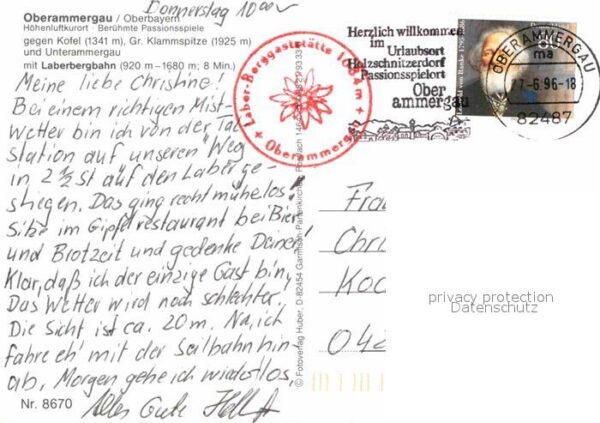 Donnerstag 10⁰⁰
Oberammergau / Oberbayern
Höhenluftkurort · Berühmte Passionsspiele
gegen Kofel (1341 m), Gr. Klammspitze (1925 m)
und Unterammergau
mit Laberbergbahn (920 m – 1680 m; 8 Min.)
Meine liebe Christine!
Bei einem richtigen Mist-
wetter bin ich von der Tal
Station auf unseren Weg
in 2 1/2 St auf den Laber ge-
stiegen. Das ging recht mühelos!
Sitze im Gipfelrestaurant bei Bier
und Brotzeit und gedenke Deiner!
Klar, daß ich der einzige Gast bin,
Das Wetter wird noch schlechter.
Die Sicht ist ca. 20 m. Na, ich
fahre eh' mit der Seilbahn hin-
ab, Morgen gehe ich wieder los,
Alles Gute
Nr. 8670
Laber-Berggaststätte 1684 m
Oberammergau
© Fotoverlag Huber, D-82454 Garmisch-Partenkirchen, Postfach
Herzlich willkommen
im
Urlaubsort
Holzschnitzerdorf
Passionsspielort
Ober
ammergau
80
OBERAMMERGAU
ma
-6.96-18
82487
Fra
Chri
Koc
042
privacy protection
Datenschutz